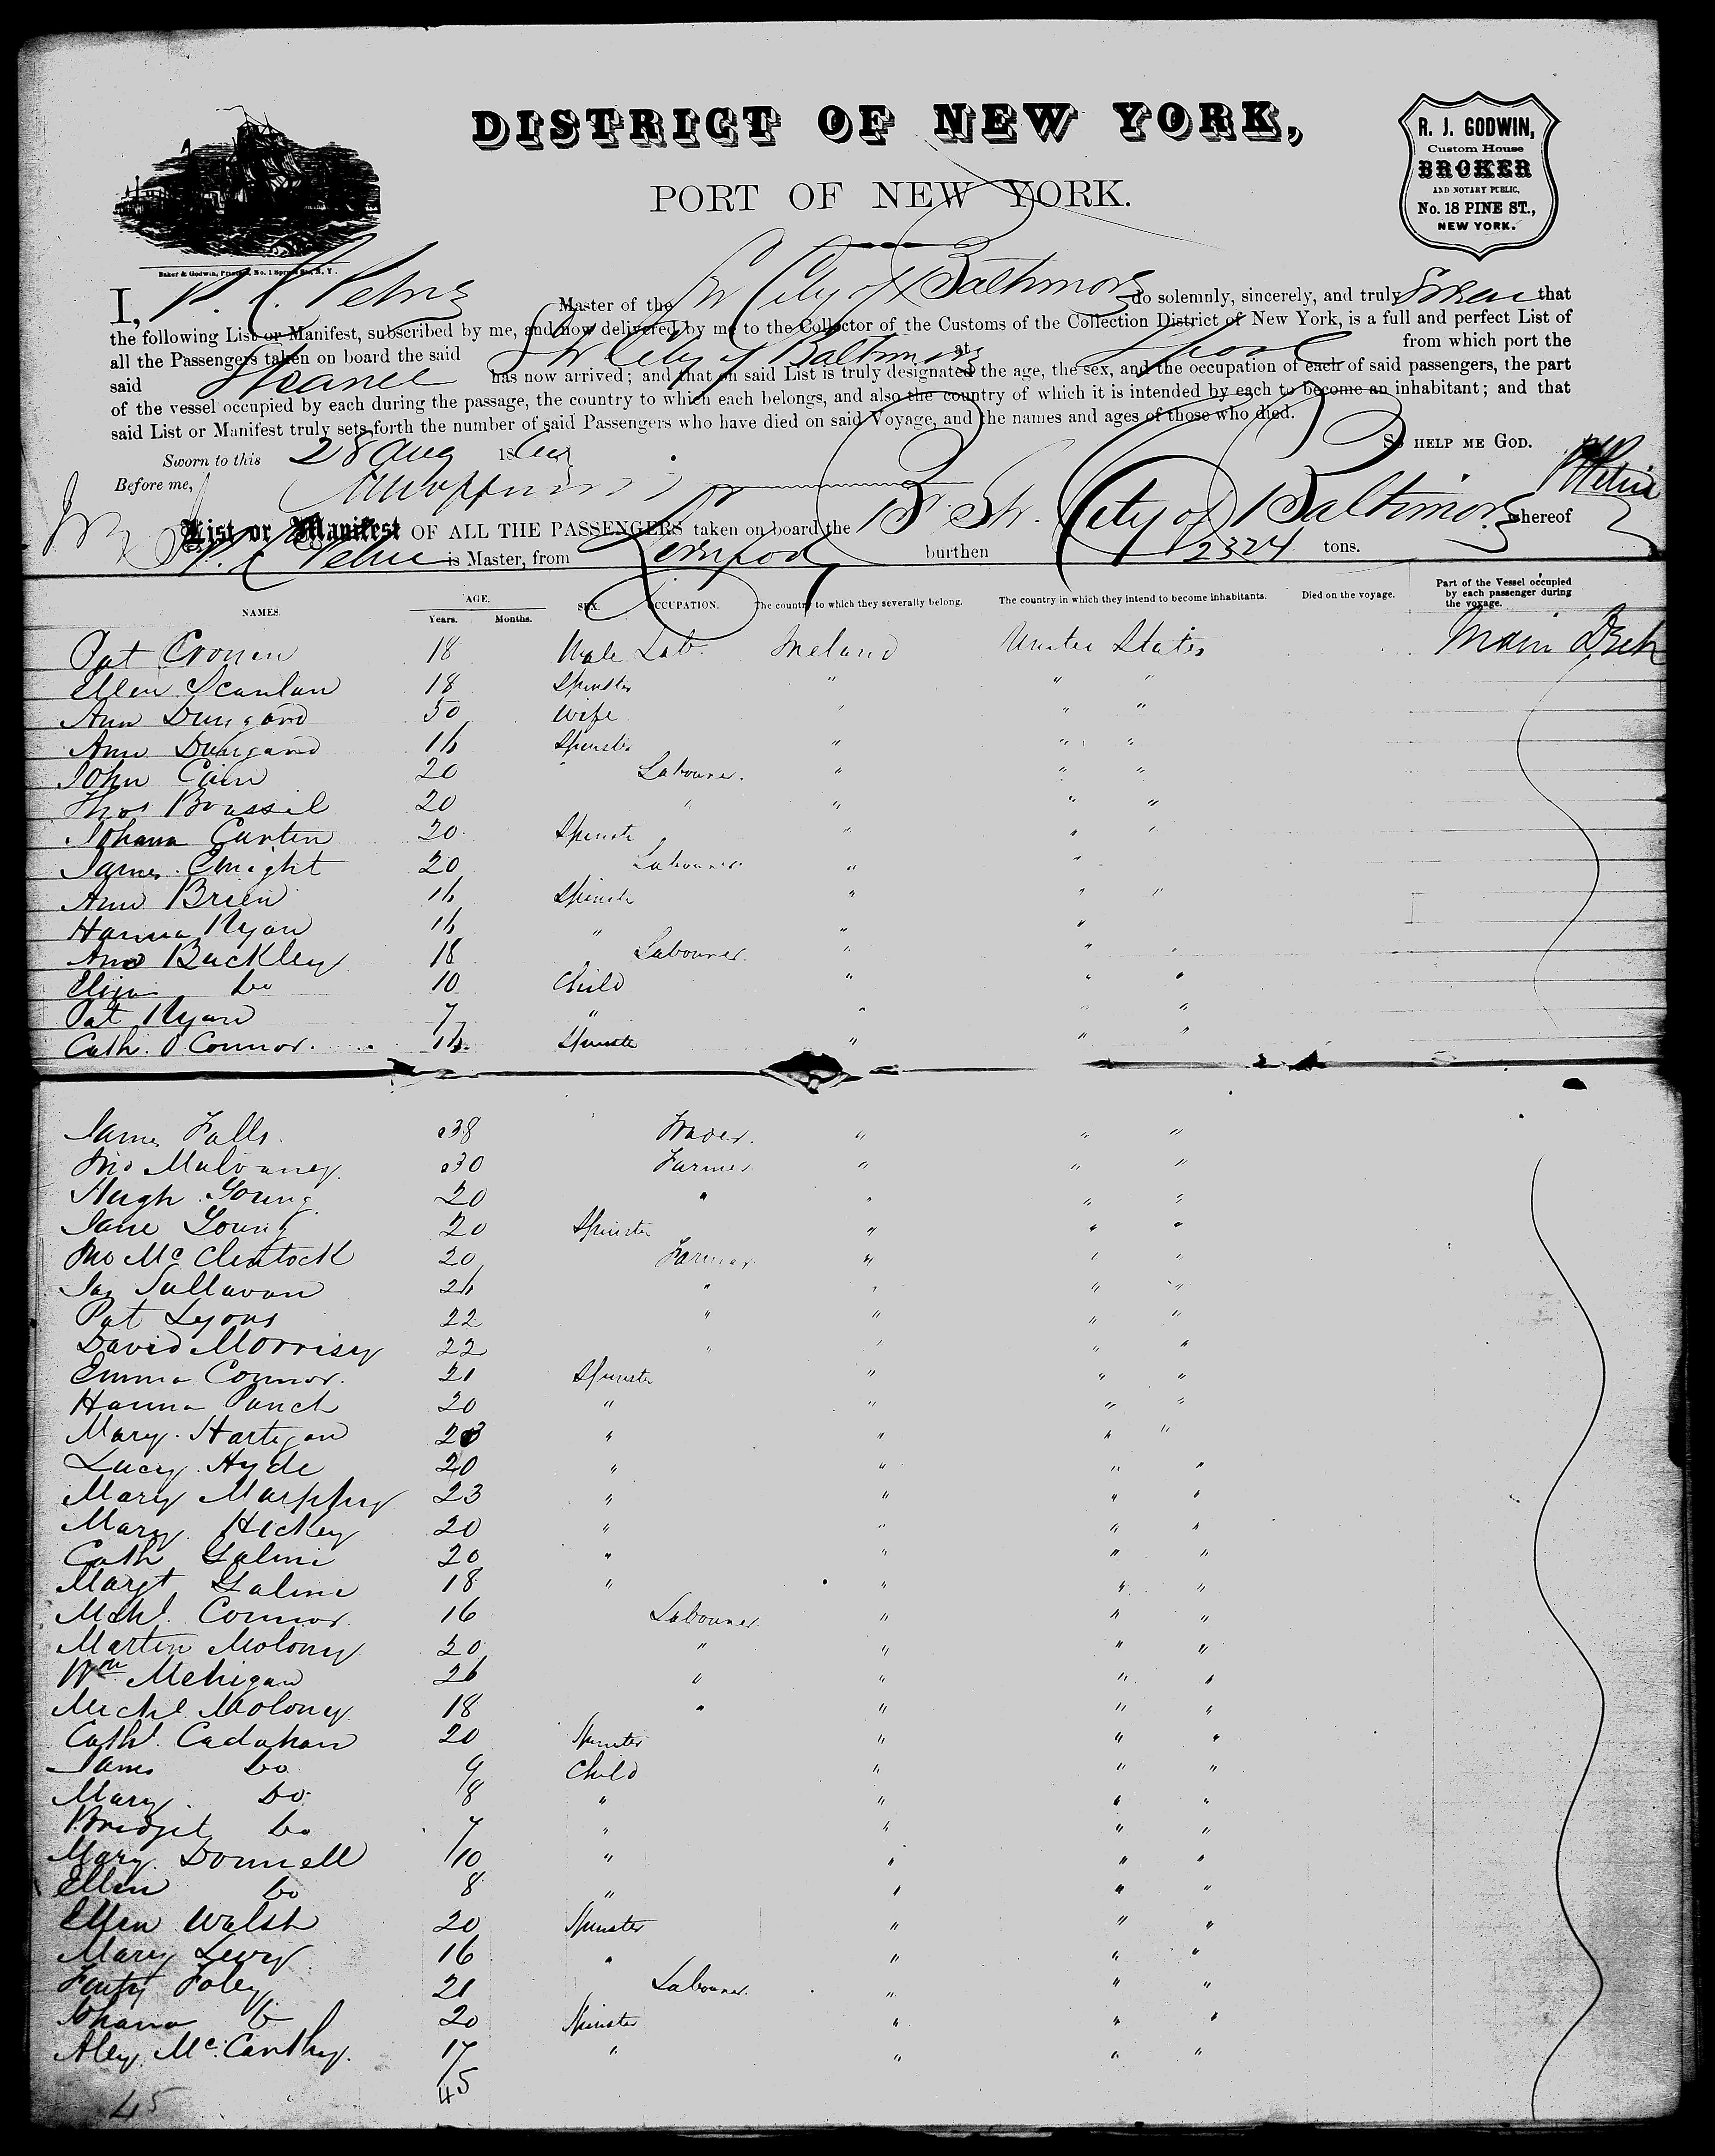 DISTRICT OF NEW YORK,
PORT OF NEW YORK.
R. J. GODWIN,
Custom House
BROKER
AND NOTARY PUBLIC,
No. 18 PINE ST.,
NEW YORK.
Baker & Godwin, Printers, No. 1 Spruce St., N. Y.
I, Master of the Sr City of Baltimore do solemnly, sincerely, and truly Swear that
the following List or Manifest, subscribed by me, and now delivered by me to the Collector of the Customs of the Collection District of New York, is a full and perfect List of
all the Passengers taken on board the said Sr City of Baltimore at Lpool from which port the
said has now arrived; and that on said List is truly designated the age, the sex, and the occupation of each of said passengers, the part
of the vessel occupied by each during the passage, the country to which each belongs, and also the country of which it is intended by each to become an inhabitant; and that
said List or Manifest truly sets forth the number of said Passengers who have died on said Voyage, and the names and ages of those who died.
SO HELP ME GOD.
Sworn to this 28 Aug 186
Before me,
List or Manifest OF ALL THE PASSENGERS taken on board the Br Sr. City of Baltimore whereof
is Master, from Liverpool burthen 2324 tons.
NAMES. AGE. Years. Months. SEX. OCCUPATION. The country to which they severally belong. The country in which they intend to become inhabitants. Died on the voyage. Part of the Vessel occupied by each passenger during the voyage.
Pat Cronin 18 Male Lab. Ireland United States Main Deck
Ellen Scanlan 18 Spinster " " "
Ann Dungand 50 Wife " " "
Ann Dungand 16 Spinster " " "
John Cain 20 Labourer. " " "
Thos Brassil 20 " " " "
Johana Curtin 20 Spinster " " "
James Enright 20 Labourer " "
Ann Brien 16 Spinster " " "
Hanna Ryan 16 " " "
Ann Buckley 18 Labourer " " "
Eliza Do 10 Child " " "
Pat Ryan 7 " " " "
Cath. O'Connor. 16 Spinster " " "
James Falls. 38 " " "
Jno Mulvaney 30 Farmer " " "
Hugh Young 20 " " " "
Jane Young 20 Spinster " " "
Jno McClentock 20 Farmer " " "
Jas Sullavan 26 " " " "
Pat Lyons 22 " " " "
David Morrisy 22 " " " "
Emma Connor. 21 Spinster " " "
Hanna Panch 20 " " " "
Mary Hartigan 23 " " " "
Lucy Hyde 20 " " " "
Mary Murphy 23 " " " "
Mary Hickey 20 " " " "
Cath Galini 20 " " " "
Margt Galini 18 " " " "
Michl. Connor 16 Labourer " " "
Martin Molony 20 " " " "
Wm Mehigan 26 " " " "
Michl Molony 18 " " " "
Cath. Cadahan 20 Spinster " " "
James Do 9 Child " " "
Mary Do 8 " " " "
Bridget Do 7 " " " "
Mary Donnell 10 " " " "
Ellen Do 8 " " " "
Ellen Walsh 20 Spinster " " "
Mary Levy 16 " " " "
Foley 21 Labourer " " "
Johana 20 Spinster " " "
Aley McCarthy. 17 " " " "
45 45